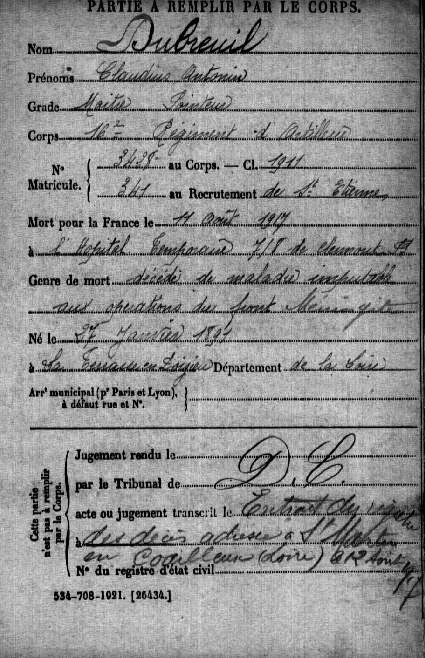 PARTIE À REMPLIR PAR LE CORPS.
Nom Dubreuil
Prénoms Claudius Antonin
Grade Maitre Pointeur
Corps 16me Régiment d'Artillerie
No Matricule. { 3438 au Corps. — Cl. 1911
341 au Recrutement de St Etienne
Mort pour la France le 11 Août 1917
à l'Hopital Temporaire 7/8 de Clermont Fd
Genre de mort décédé de maladie imputable
aux opérations du front Méningite
Né le 27 Janvier 1891
à La en Département de la Loire
Arrt municipal (pr Paris et Lyon), à défaut rue et No. }
Cette partie n'est pas à remplir par le Corps.
Jugement rendu le
par le Tribunal de D. C.
acte ou jugement transcrit le Extrait du registre
des décès adressé à St
en (Loire) le 12 Août
No du registre d'état civil 17
534-708-1921. [26434.]